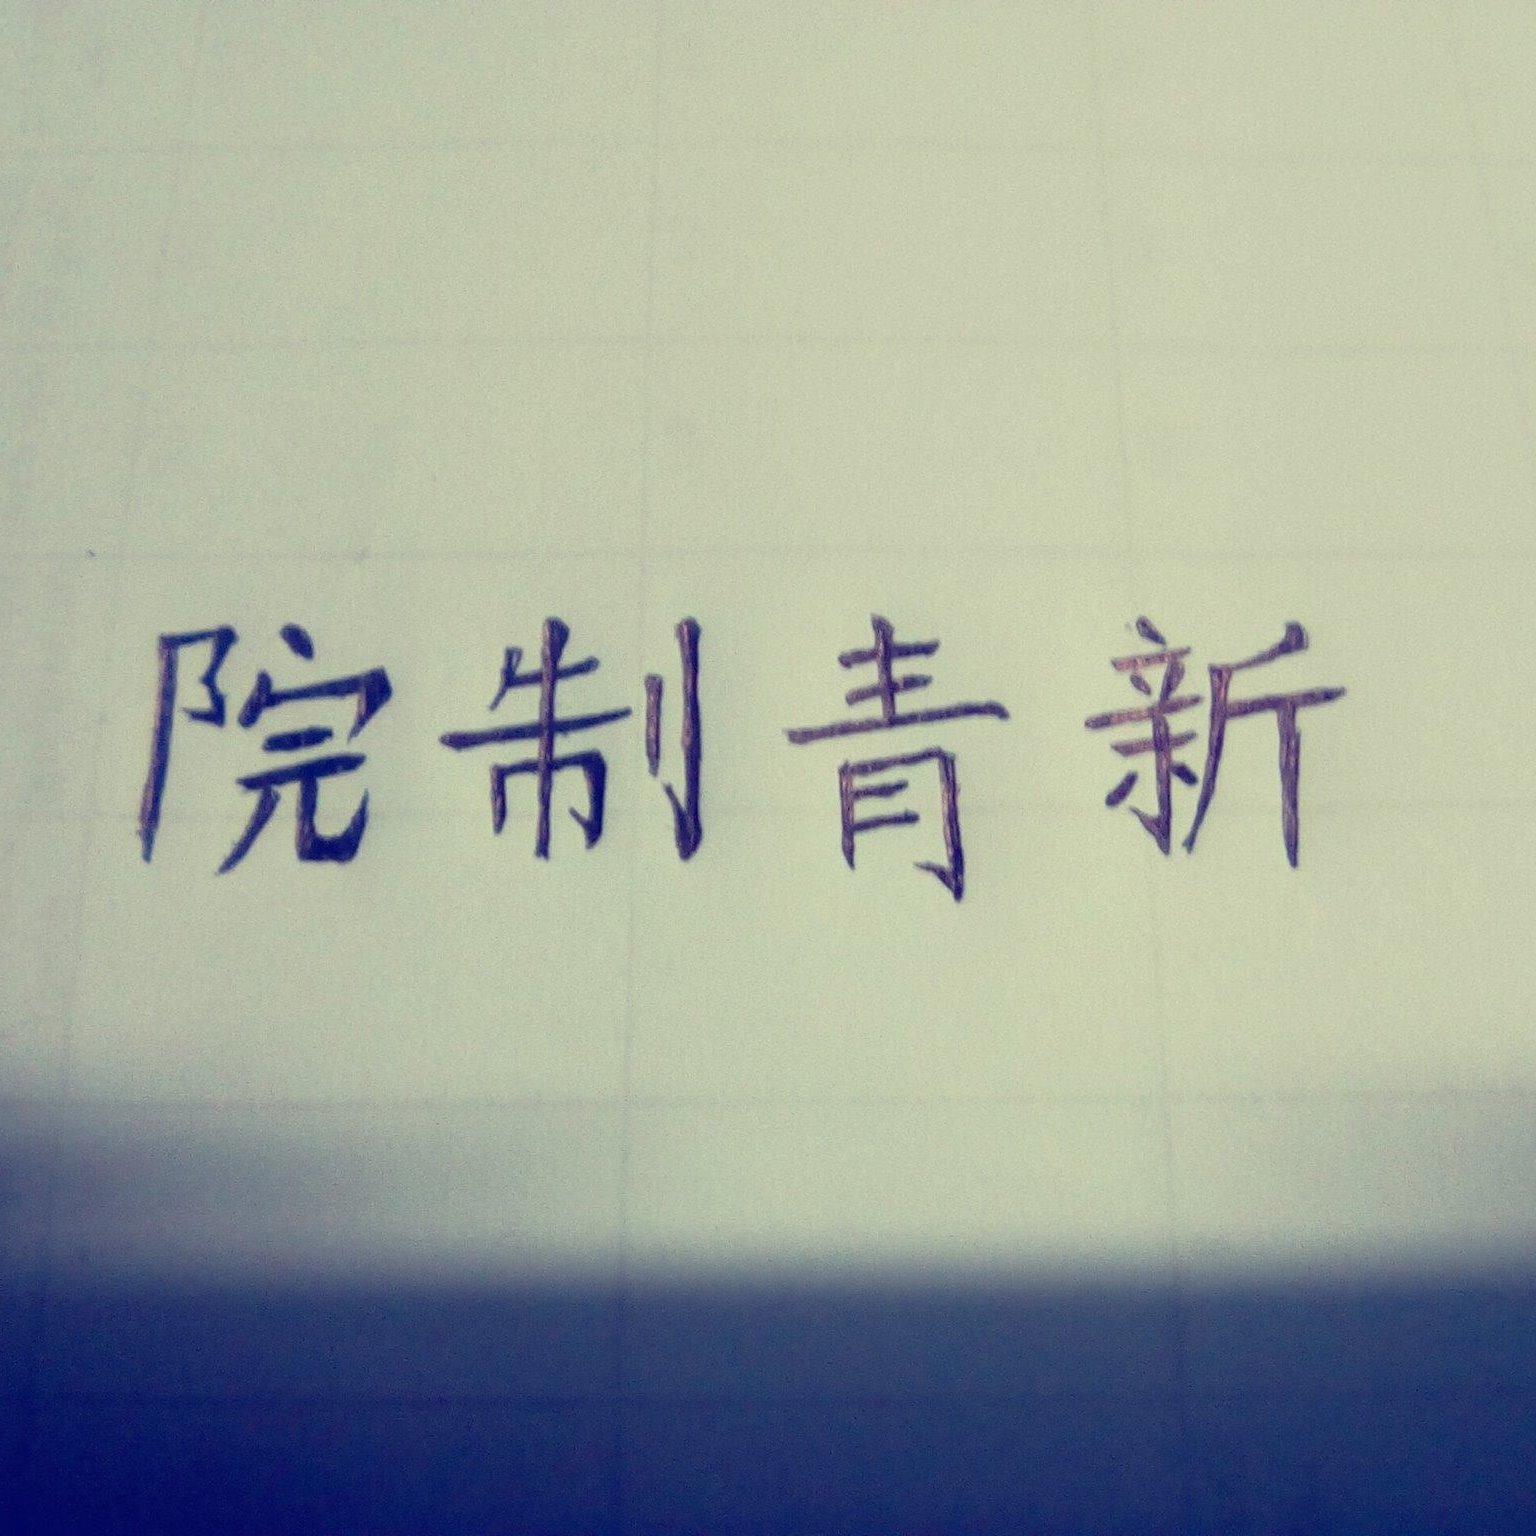 院制青新